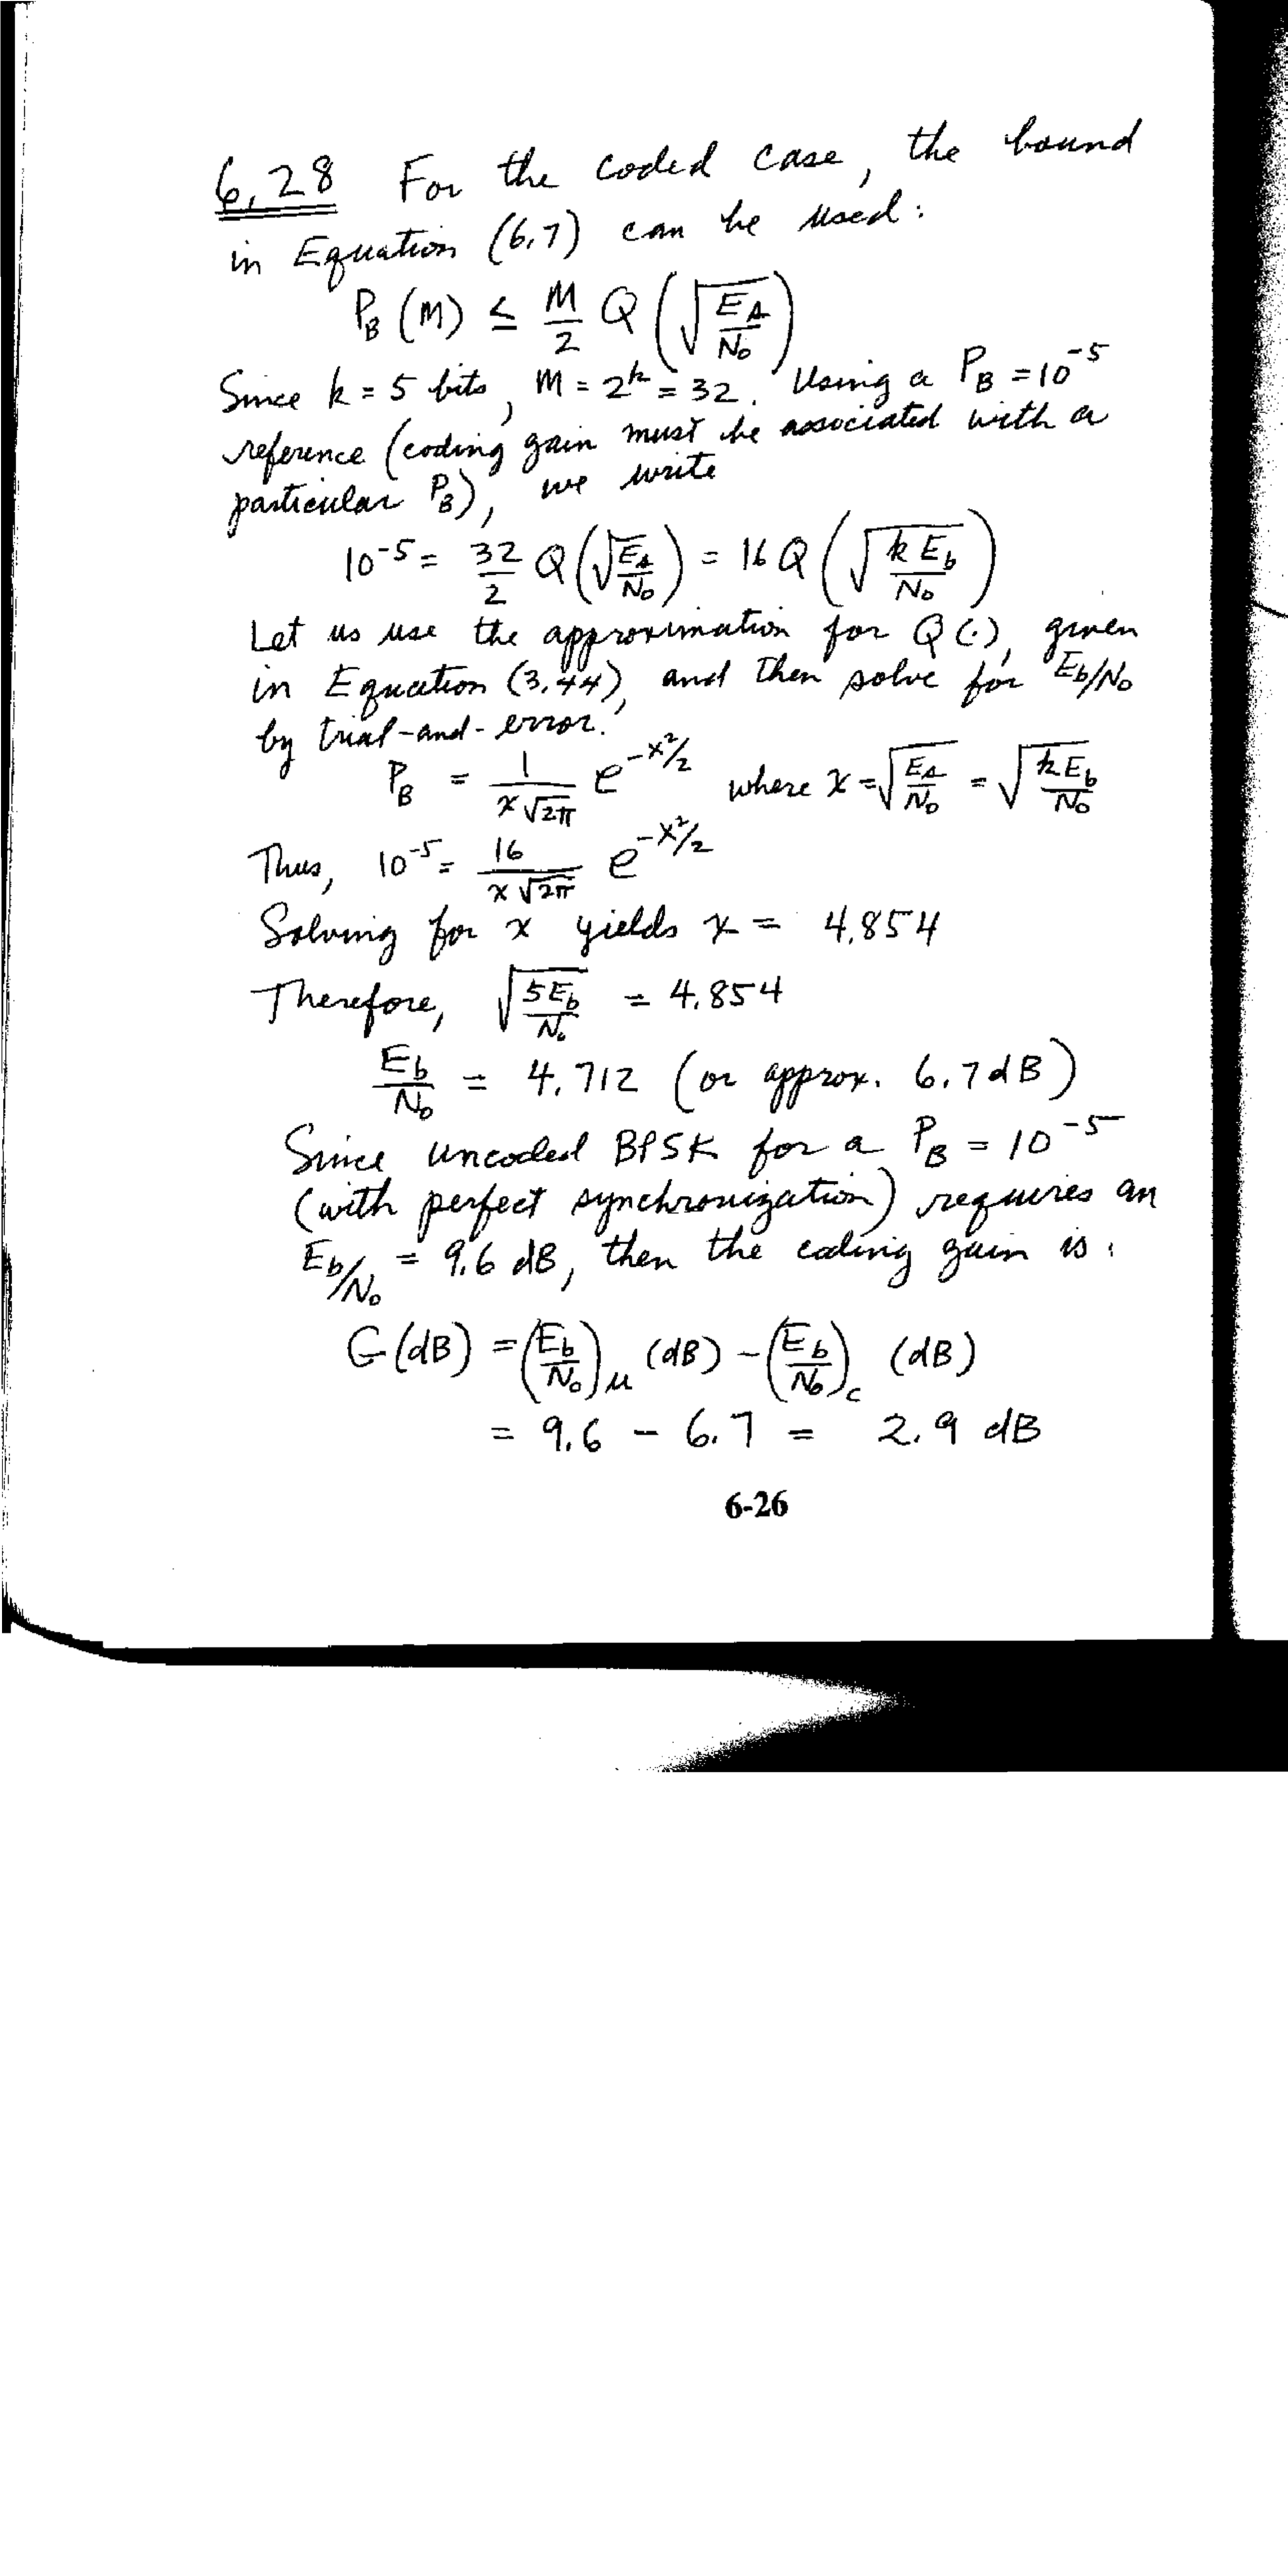 6.28 For the coded case, the bound
in Equation (6.7) can be used:
P_B (M) ≤ M/2 Q (√(E_s/N_0))
Since k = 5 bits, M = 2^k = 32. Using a P_B = 10^-5
reference (coding gain must be associated with a
particular P_B), we write
10^-5 = 32/2 Q (√(E_s/N_0)) = 16 Q (√(k E_b/N_0))
Let us use the approximation for Q(·), given
in Equation (3.44), and then solve for Eb/No
by trial-and-error.
P_B = 1/(x√2π) e^(-x²/2) where x = √(E_s/N_0) = √(k E_b/N_0)
Thus, 10^-5 = 16/(x√2π) e^(-x²/2)
Solving for x yields x = 4.854
Therefore, √(5E_b/N_0) = 4.854
E_b/N_0 = 4.712 (or approx. 6.7 dB)
Since uncoded BPSK for a P_B = 10^-5
(with perfect synchronization) requires an
E_b/N_0 = 9.6 dB, then the coding gain is:
G (dB) = (E_b/N_0)_u (dB) - (E_b/N_0)_c (dB)
= 9.6 - 6.7 = 2.9 dB
6-26